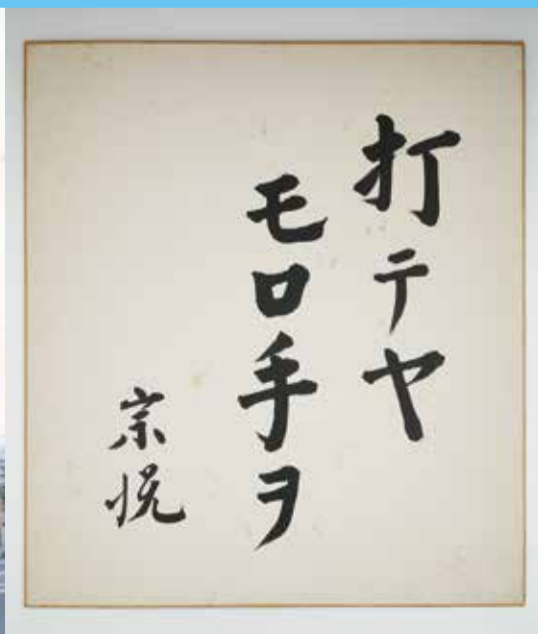 打テヤ
モロ手ヲ
宗悦